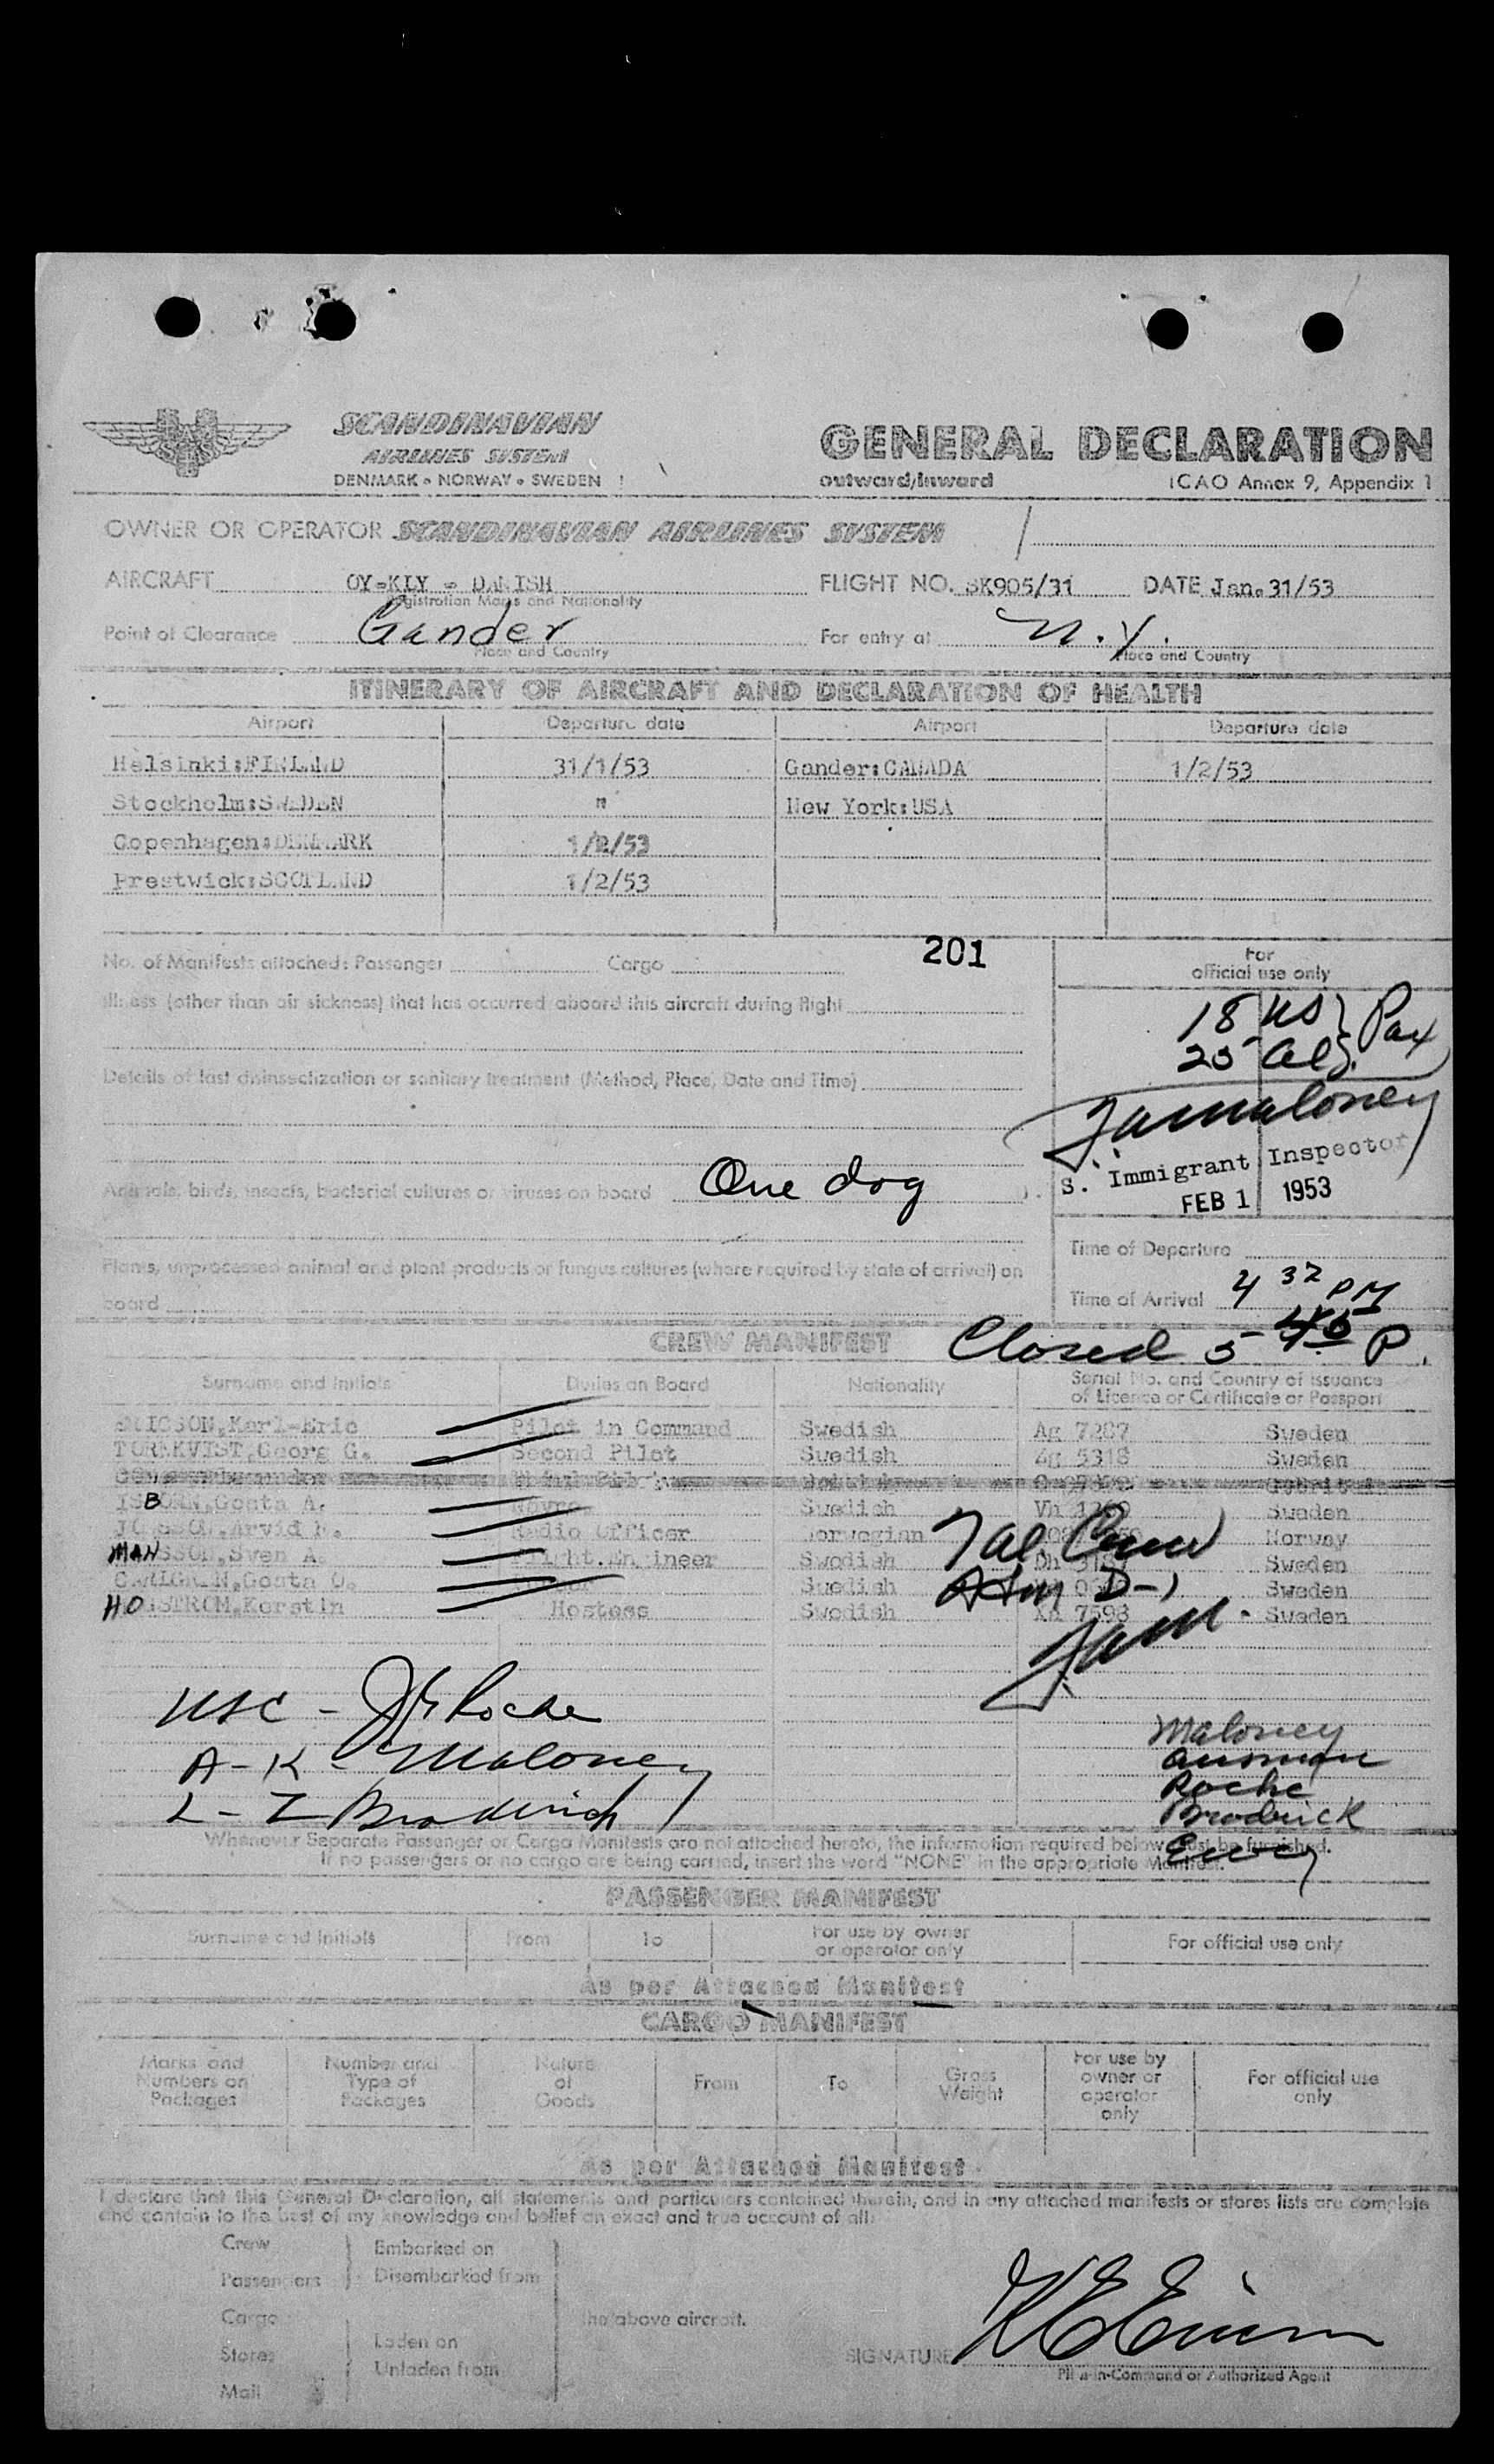 SCANDINAVIAN
AIRLINES SYSTEM
DENMARK • NORWAY • SWEDEN
GENERAL DECLARATION
outward/inward
ICAO Annex 9, Appendix 1
OWNER OR OPERATOR SCANDINAVIAN AIRLINES SYSTEM
AIRCRAFT OY-KLY - DANISH FLIGHT NO. SK905/31 DATE Jan.31/53
Registration Marks and Nationality
Point of Clearance Gander For entry at N.Y.
Place and Country Place and Country
ITINERARY OF AIRCRAFT AND DECLARATION OF HEALTH
Airport Departure date Airport Departure date
Helsinki:FINLAND 31/1/53 Gander:CANADA 1/2/53
Stockholm:SWEDEN " New York:USA
Copenhagen:DENMARK 1/2/53
Prestwick:SCOTLAND 1/2/53
201
No. of Manifests attached: Passenger Cargo
For
official use only
Illness (other than air sickness) that has occurred aboard this aircraft during flight
18 US } Pax
25 Al
Details of last disinsectization or sanitary treatment (Method, Place, Date and Time)
Maloney
S. Immigrant Inspector
FEB 1 1953
Animals, birds, insects, bacterial cultures or viruses on board One dog
Time of Departure
Plants, unprocessed animal and plant products or fungus cultures (where required by state of arrival) on
board
Time of Arrival 4 32 PM
Closed 5 45 P.
CREW MANIFEST
Surname and Initials Duties on Board Nationality Serial No. and Country of Issuance
of Licence or Certificate or Passport
ERICSON,Karl-Eric Pilot in Command Swedish Ag 7287 Sweden
TORNKVIST,Georg G. Second Pilot Swedish Zg 5318 Sweden
Gosta A. Swedish Vh Sweden
Arvid Radio Officer Norwegian Norway
MANSSON,Sven A. Flight.Engineer Swedish Dh Sweden
Gosta O. Swedish Sweden
HOGSTROM,Kerstin Hostess Swedish 7598 Sweden
Crew
Adm D-1
USC - Roche
A-K - Maloney
L-I Broderick
Maloney
Roche
Broderick
Whenever Separate Passenger or Cargo Manifests are not attached hereto, the information required below must be furnished.
If no passengers or no cargo are being carried, insert the word "NONE" in the appropriate Manifest.
PASSENGER MANIFEST
Surname and Initials From To For use by owner
or operator only For official use only
As per Attached Manifest
CARGO MANIFEST
Marks and
Numbers on
Packages
Number and
Type of
Packages
Nature
of
Goods
From
To
Gross
Weight
For use by
owner or
operator
only
For official use
only
As per Attached Manifest
I declare that this General Declaration, all statements and particulars contained therein, and in any attached manifests or stores lists are complete
and contain to the best of my knowledge and belief an exact and true account of all:
Crew
Passengers
Embarked on
Disembarked from
Cargo
Stores
Mail
Laden on
Unladen from
the above aircraft.
SIGNATURE
Pilot-in-Command or Authorized Agent